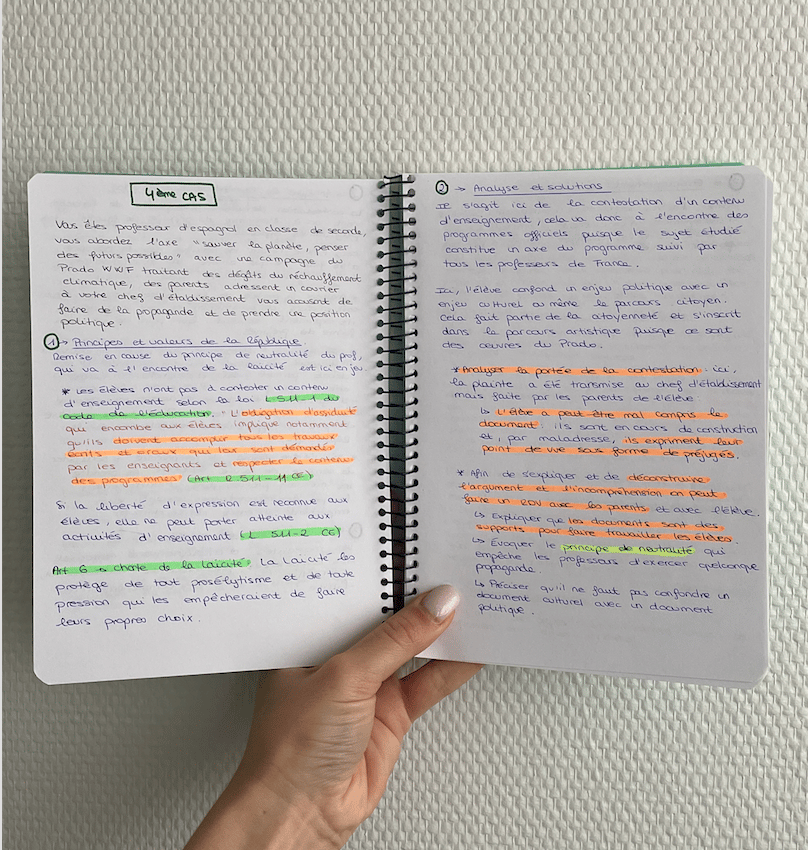 4ème CAS
Vous êtes professeur d'espagnol en classe de seconde,
vous abordez l'axe "sauver la planète, penser
des futurs possibles" avec une campagne du
Prado WWF traitant des dégâts du réchauffement
climatique, des parents adressent un courrier
à votre chef d'établissement vous accusant de
faire de la propagande et de prendre une position
politique.
① → Principes et valeurs de la République.
Remise en cause du principe de neutralité du prof,
qui va à l'encontre de la laïcité est ici en jeu.
* Les élèves n'ont pas à contester un contenu
d'enseignement selon la loi L 511-1 du
code de l'éducation. "L'obligation d'assiduité
qui encombe aux élèves implique notamment
qu'ils doivent accomplir tous les travaux
écrits et oraux qui leur sont demandés
par les enseignants et respecter le contenu
des programmes" (Art R 511-11 CE)
Si la liberté d'expression est reconnue aux
élèves, elle ne peut porter atteinte aux
activités d'enseignement (L 511-2 CE)
Art 6 charte de la laïcité: La laïcité les
protège de tout prosélytisme et de toute
pression qui les empêcheraient de faire
leurs propres choix.
② → Analyse et solutions
Il s'agit ici de la contestation d'un contenu
d'enseignement, cela va donc à l'encontre des
programmes officiels puisque le sujet étudié
constitue un axe du programme suivi par
tous les professeurs de France.
Ici, l'élève confond un enjeu politique avec un
enjeu culturel ou même le parcours citoyen.
Cela fait partie de la citoyenneté et s'inscrit
dans la parcours artistique puisque ce sont
des œuvres du Prado.
* Analyser la portée de la contestation: ici,
la plainte a été transmise au chef d'établissement
mais faite par les parents de l'élève.
↳ L'élève a peut être mal compris le
document: ils sont en cours de construction
et, par maladresse, ils expriment leur
point de vue sous forme de préjugés.
* Afin de s'expliquer et de déconstruire
l'argument et l'incompréhension on peut
faire un RDV avec les parents et avec l'élève.
↳ Expliquer que les documents sont des
supports pour faire travailler les élèves.
↳ Évoquer le principe de neutralité qui
empêche les professeurs d'exercer quelconque
propagande.
↳ Préciser qu'il ne faut pas confondre un
document culturel avec un document
politique.